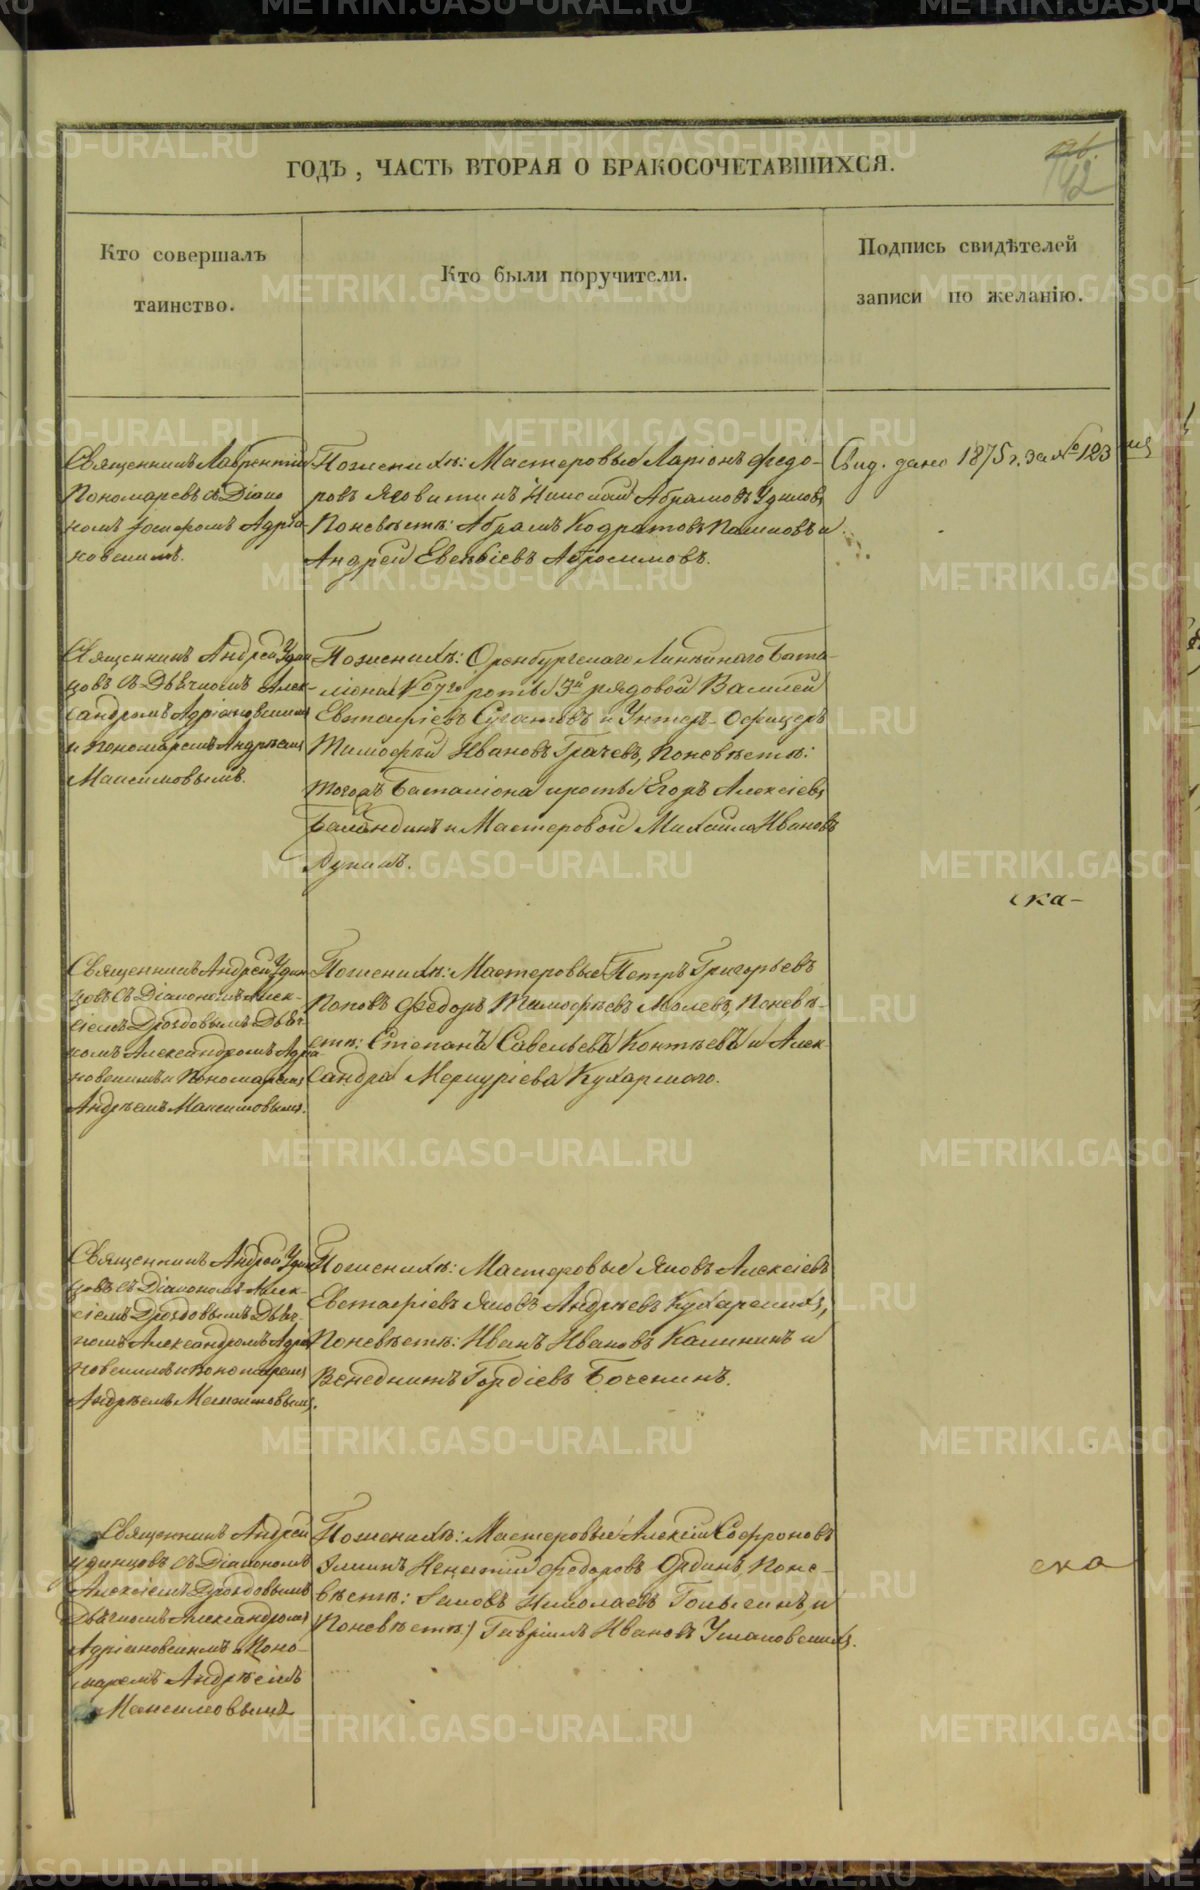 ГОДЪ, ЧАСТЬ ВТОРАЯ О БРАКОСОЧЕТАВШИХСЯ.
142
Кто совершалъ
таинство.
Кто были поручители.
Подпись свидѣтелей
записи по желанію.
Священникъ Лаврентій
Пономаревъ съ Діако
номъ Адріа-
новскимъ.
По женихѣ: Мастеровые Ларіонъ Федо-
ровъ Яговитинъ Николай Абрамовъ
По невѣстѣ: Абрамъ Кодратовъ и
Андрей Евсѣвіевъ Абросимовъ.
Свид. дано 1875 г. за № 123
Священникъ Андрей Удин
цовъ съ Дьячкомъ Алек-
сандромъ Адріановскимъ
и Пономаремъ Андреемъ
Максимовымъ.
По женихѣ: Оренбургскаго Линѣйнаго Бата-
ліона № 7го роты 3й рядовой Василей
Евстафіевъ и Унтеръ-Офицеръ
Тимофѣй Ивановъ Грачевъ, По невѣстѣ:
Тогожъ Баталіона и роты Егоръ Алексіевъ
Баландинъ и Мастеровой Михайло Ивановъ
ска-
Священникъ Андрей Удин
цовъ съ Діакономъ Алек-
сіемъ Дроздовымъ Дьяч-
комъ Александромъ Адріа
новскимъ и Пономаремъ
Андреемъ Максимовымъ.
По женихѣ: Мастеровые Петръ Григорьевъ
Поповъ Федоръ Тимофѣевъ По невѣ-
стѣ: Степанъ Савельевъ и Алек-
сандра Меркуріева Кухарскаго.
Священникъ Андрей Удин
цовъ съ Діакономъ Алек-
сіемъ Дроздовымъ Дьяч-
комъ Александромъ Адріа
новскимъ и Пономаремъ
Андреемъ Максимовымъ.
По женихѣ: Мастеровые Яковъ Алексіевъ
Евстафіевъ Яковъ Андреевъ Кухарскихъ,
По невѣстѣ: Иванъ Ивановъ Калининъ и
Венедиктъ Гордіевъ
Священникъ Андрей
Удинцовъ съ Діакономъ
Алексіемъ Дроздовымъ
Дьячкомъ Александромъ
Адріановскимъ и Поно-
маремъ Андреемъ
Максимовымъ
По женихѣ: Мастеровые Алексій Софроновъ
Федоровъ По не-
вѣстѣ: Николаевъ и
(По невѣстѣ) Гавріилъ Ивановъ
ска
METRIKI.GASO-URAL.RU